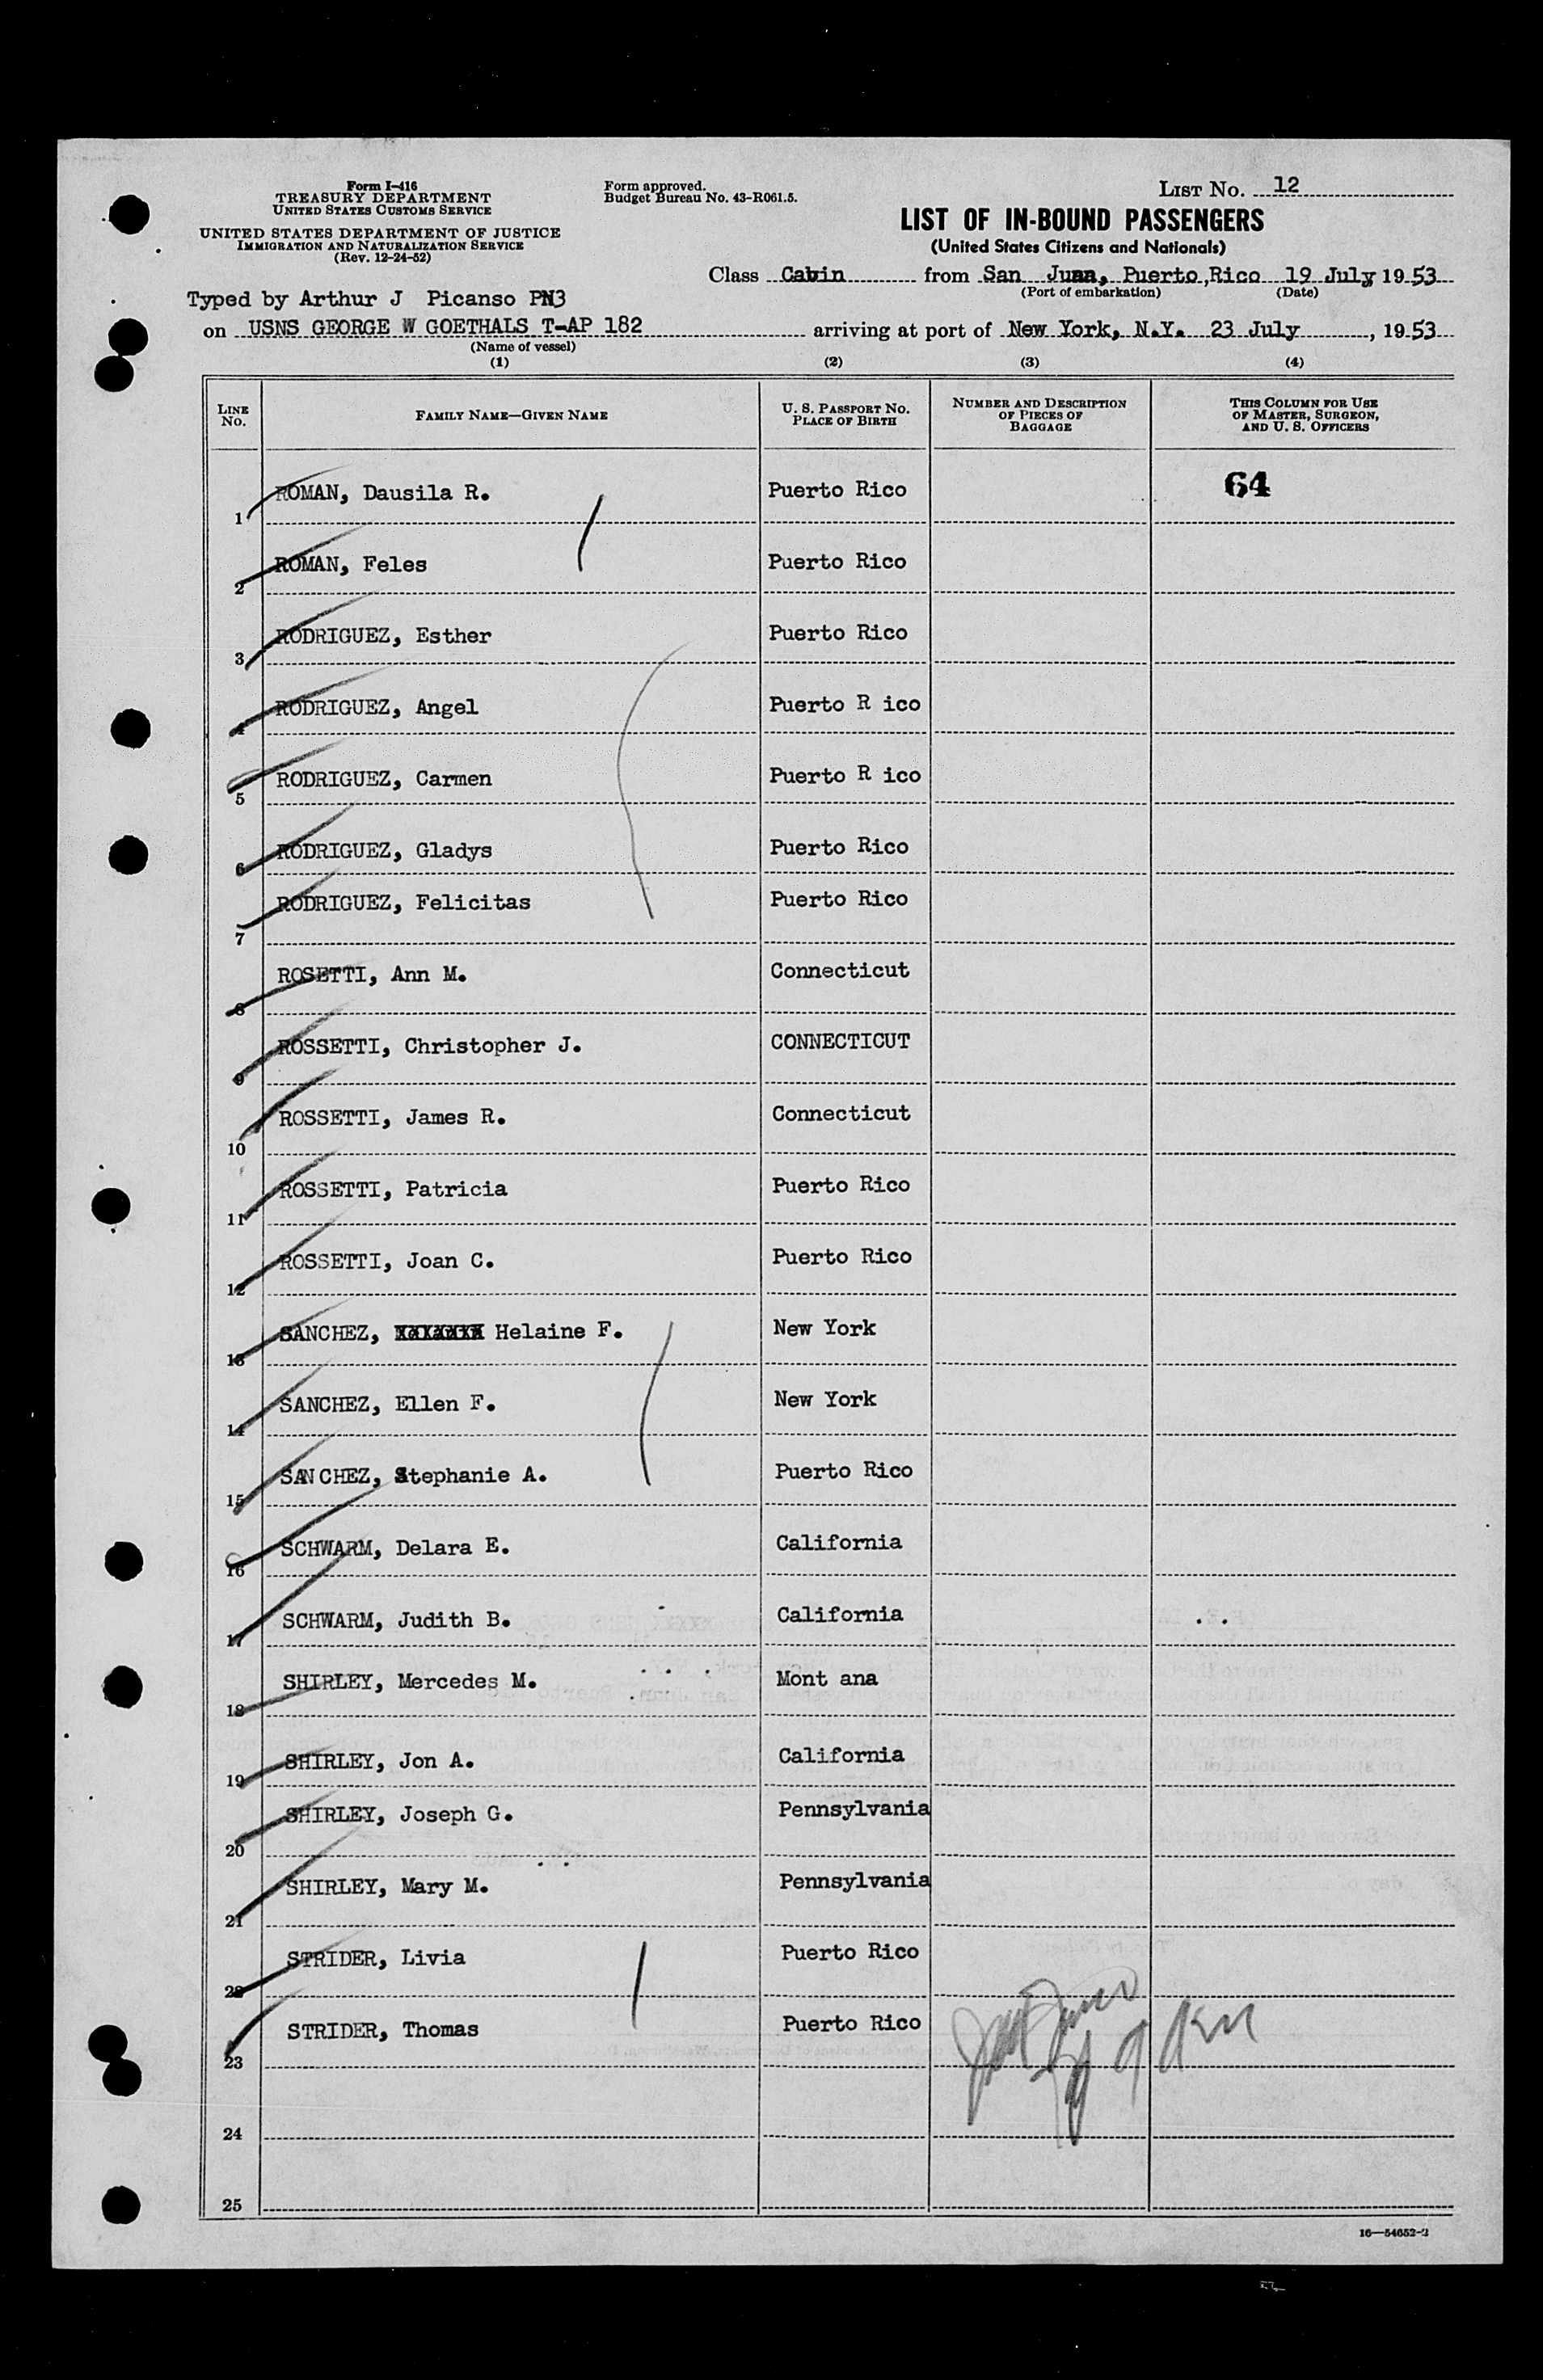 Form I-416
TREASURY DEPARTMENT
UNITED STATES CUSTOMS SERVICE
UNITED STATES DEPARTMENT OF JUSTICE
IMMIGRATION AND NATURALIZATION SERVICE
(Rev. 12-24-52)
Form approved.
Budget Bureau No. 43-R061.5.
LIST No. 12
LIST OF IN-BOUND PASSENGERS
(United States Citizens and Nationals)
Class Cabin from San Juan, Puerto,Rico 19 July, 1953
(Port of embarkation) (Date)
Typed by Arthur J Picanso PN3
on USNS GEORGE W GOETHALS T-AP 182 arriving at port of New York, N.Y. 23 July, 1953
(Name of vessel)
(1) (2) (3) (4)
LINE No. FAMILY NAME—GIVEN NAME U. S. PASSPORT No. PLACE OF BIRTH NUMBER AND DESCRIPTION OF PIECES OF BAGGAGE THIS COLUMN FOR USE OF MASTER, SURGEON, AND U. S. OFFICERS
1 ROMAN, Dausila R. Puerto Rico 64
2 ROMAN, Feles Puerto Rico
3 RODRIGUEZ, Esther Puerto Rico
4 RODRIGUEZ, Angel Puerto R ico
5 RODRIGUEZ, Carmen Puerto R ico
6 RODRIGUEZ, Gladys Puerto Rico
7 RODRIGUEZ, Felicitas Puerto Rico
8 ROSETTI, Ann M. Connecticut
9 ROSSETTI, Christopher J. CONNECTICUT
10 ROSSETTI, James R. Connecticut
11 ROSSETTI, Patricia Puerto Rico
12 ROSSETTI, Joan C. Puerto Rico
13 SANCHEZ, Helaine F. New York
14 SANCHEZ, Ellen F. New York
15 SANCHEZ, Stephanie A. Puerto Rico
16 SCHWARM, Delara E. California
17 SCHWARM, Judith B. California
18 SHIRLEY, Mercedes M. Mont ana
19 SHIRLEY, Jon A. California
20 SHIRLEY, Joseph G. Pennsylvania
21 SHIRLEY, Mary M. Pennsylvania
22 STRIDER, Livia Puerto Rico
23 STRIDER, Thomas Puerto Rico
24
25
16—54652-2